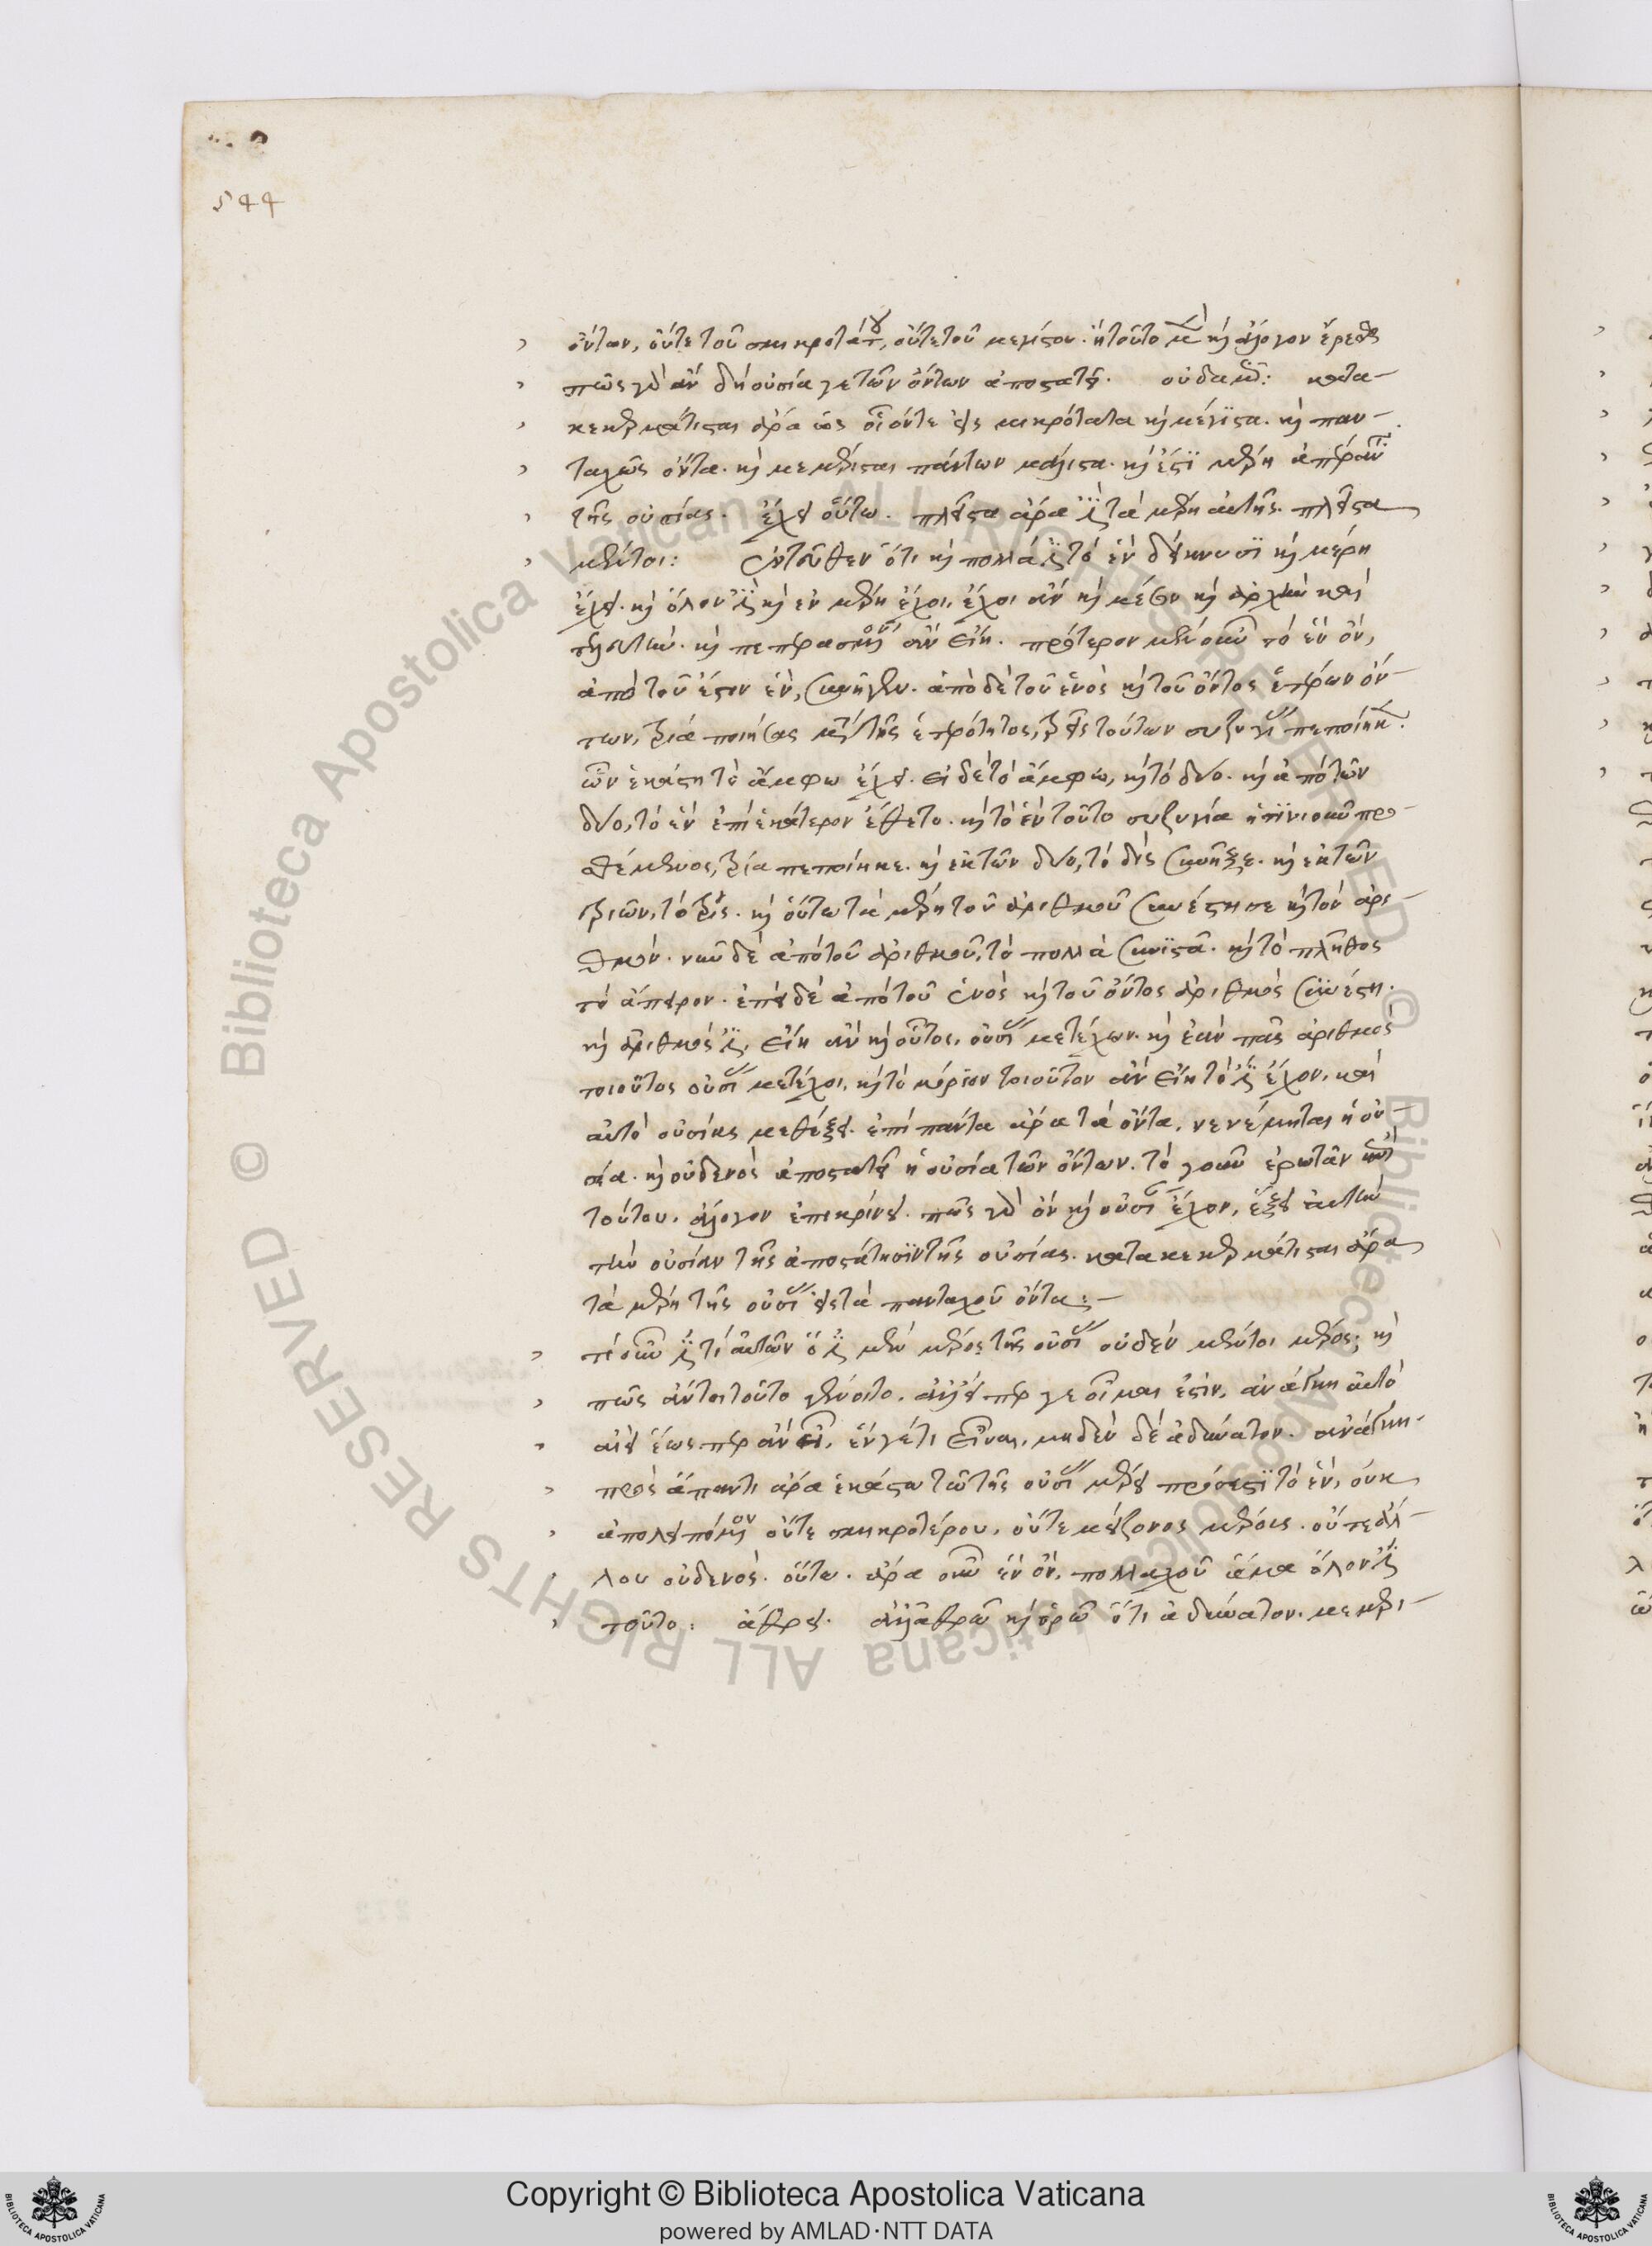 544
ὄντων, οὔτε τοῦ σμικροτάτου, οὔτε τοῦ μεγίστου. ἢ τοῦτο μὲν καὶ ἄλογον ἐρέσθαι
πῶς γὰρ ἂν δὴ οὐσία γε τῶν ὄντων ἀποστατεῖ. οὐδαμῶς: κατα-
κεκερμάτισται ἄρα ὡς οἷόντε εἰς μικρότατα καὶ μέγιστα. καὶ παν-
ταχῶς ὄντα. καὶ μεμέρισται πάντων μάλιστα. καὶ ἐστὶ μέρη ἀπέραντα
τῆς οὐσίας. ἔχει οὕτω. πλεῖστα ἄρα ἐστὶ τὰ μέρη αὐτῆς. πλεῖστα
μέντοι: ἐντεῦθεν ὅτι καὶ πολλά ἐστι τὸ ἓν δείκνυσι καὶ μέρη
ἔχει. καὶ ὅλον ἐστὶ καὶ ἓν μέρη ἔχοι, ἔχοι ἂν καὶ μέσον καὶ ἀρχὴν καὶ
τελευτήν. καὶ πεπερασμένον ἂν εἴη. πρότερον μὲν οὖν τὸ ἓν ὄν,
ἀπὸ τοῦ ἔστιν ἕν, συνῆγεν. ἀπὸ δὲ τοῦ ἑνὸς καὶ τοῦ ὄντος ἑτέρων ὄν-
των, τρία ποιήσας μετὰ τῆς ἑτερότητος, τρεῖς τούτων συζυγίας πεποίηκεν.
ὧν ἑκάστη τὸ ἄμφω ἔχει. εἰ δὲ τὸ ἄμφω, καὶ τὸ δύο. καὶ ἀπὸ τῶν
δύο, τὸ ἓν ἐπὶ ἑκάτερον ἔθετο. καὶ τὸ ἓν τοῦτο συζυγία ᾗτινιοῦν προ-
θέμενος, τρία πεποίηκε. καὶ ἐκ τῶν δύο, τὸ δὶς συνῆξε. καὶ ἐκ τῶν
τριῶν, τὸ τρίς. καὶ οὕτω τὰ μέρη τοῦ ἀριθμοῦ συνέστησε καὶ τὸν ἀρι-
θμόν. νῦν δὲ ἀπὸ τοῦ ἀριθμοῦ, τὸ πολλὰ συνιστᾶ. καὶ τὸ πλῆθος
τὸ ἄπειρον. ἐπεὶ δὲ ἀπὸ τοῦ ἑνὸς καὶ τοῦ ὄντος ἀριθμὸς συνέστη.
καὶ ἀριθμός ἐστι, εἴη ἂν καὶ οὗτος, οὐσίας μετέχων. καὶ ἐὰν πᾶς ἀριθμὸς
τοιοῦτος οὐσίας μετέχοι, καὶ τὸ μόριον τοιοῦτον ἂν εἴη τὸ ἐστὶ ἔχον, καὶ
αὐτὸ οὐσίας μεθέξει. ἐπὶ πάντα ἄρα τὰ ὄντα, νενέμηται ἡ οὐ-
σία. καὶ οὐδενὸς ἀποστατεῖ ἡ οὐσία τῶν ὄντων. τὸ γοῦν ἐρωτᾶν
τούτου, ἄλογον ἐπικρίνει. πῶς γὰρ ὂν καὶ οὐσίαν ἔχον, ἕξει αὐτὴν
τὴν οὐσίαν τῆς ἀποστάτησιν τῆς οὐσίας. κατακεκερμάτισται ἄρα
τὰ μέρη τῆς οὐσίας εἰς τὰ πανταχοῦ ὄντα:-
τί οὖν ἐστὶ τι αὐτῶν ὅ ἐστι μὲν μέρος τῆς οὐσίας οὐδὲν μέντοι μέρος; καὶ
πῶς ἄν τοι τοῦτο γένοιτο. ἀλλ' εἴπερ γε οἶμαι ἐστίν, ἀνάγκη αὐτὸ
αἰεὶ ἕωσπερ ἂν ᾖ, ἕν γέ τι εἶναι, μηδὲν δὲ ἀδύνατον. ἀνάγκη-
πρὸς ἅπαντι ἄρα ἑκάστω τῶ τῆς οὐσίας μέρει πρόσεστι τὸ ἕν, οὐκ
ἀπολειπόμενον οὔτε σμικροτέρου, οὔτε μείζονος μέρους. οὔτε ἄλ-
λου οὐδενός. οὕτω. ἄρα οὖν ἓν ὄν, πολλαχοῦ ἅμα ὅλον ἐστὶ
τοῦτο: ἄθρει. ἀλλ' ἀθρῶ καὶ ὁρῶ ὅτι ἀδύνατον. μεμερι-